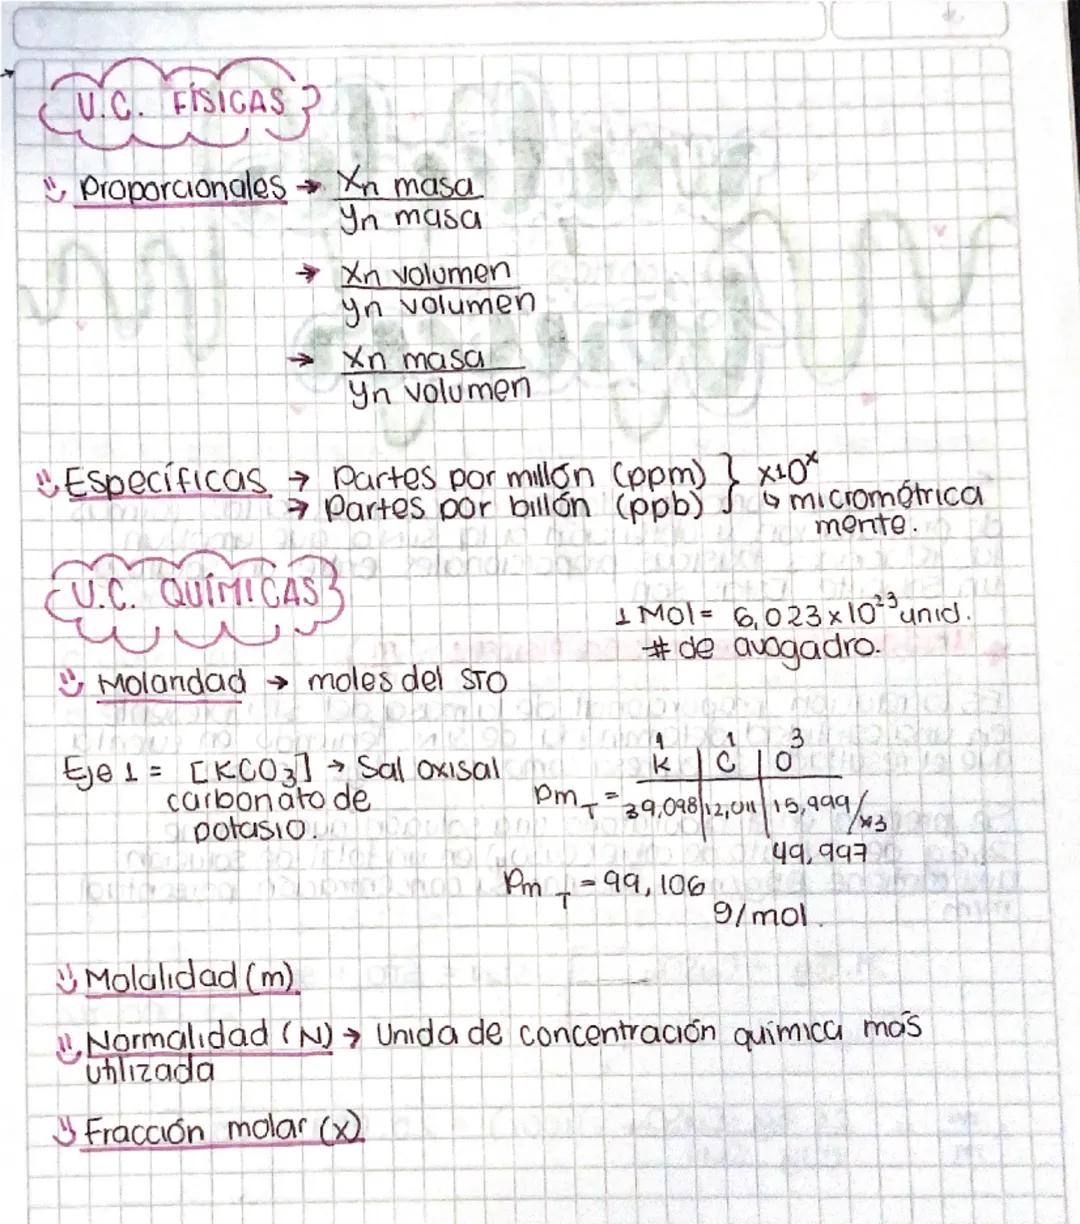 U.C. FÍSICAS
Proporcionales → Xn masa
yn masa
→ Xn volumen
yn volumen
→ Xn masa
yn volumen
Específicas → Partes por millón (ppm) } x10ˣ
→ Partes por billón (ppb) } ↳ micrométrica
mente.
U.C. QUÍMICAS
1 Mol = 6,023 x 10²³ unid.
# de avogadro.
Molaridad → moles del STO
1 1 3
Eje 1 = [KCO₃] → Sal oxisal K | C | O
carbonato de PmT = 39,098 | 12,011 | 15,999/x3
potasio.
49,997
PmT = 99,106
g/mol.
Molalidad (m)
Normalidad (N) → Unida de concentración química más
utilizada
Fracción molar (x)